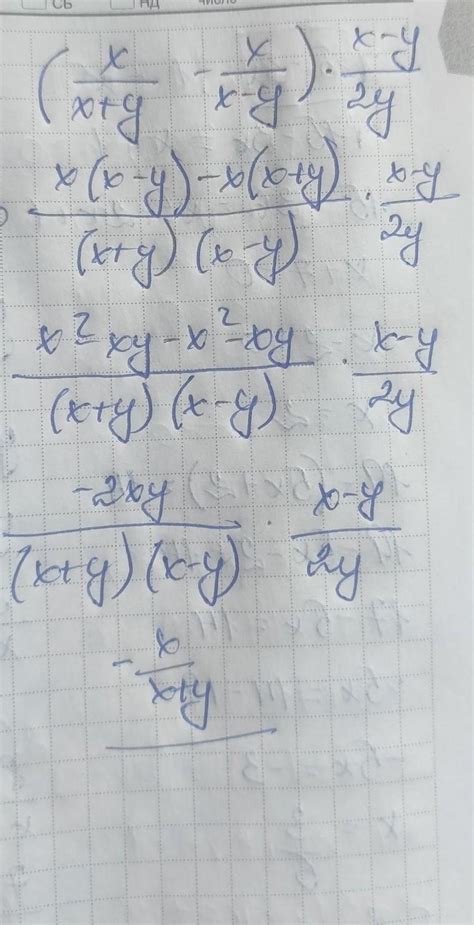 СБ НД ЧИСЛО
(x/(x+y) - x/(x-y)) · (x-y)/2y
(x(x-y)-x(x+y))/((x+y)(x-y)) · (x-y)/2y
(x²-xy-x²-xy)/((x+y)(x-y)) · (x-y)/2y
(-2xy)/((x+y)(x-y)) · (x-y)/2y
-x/(x+y)